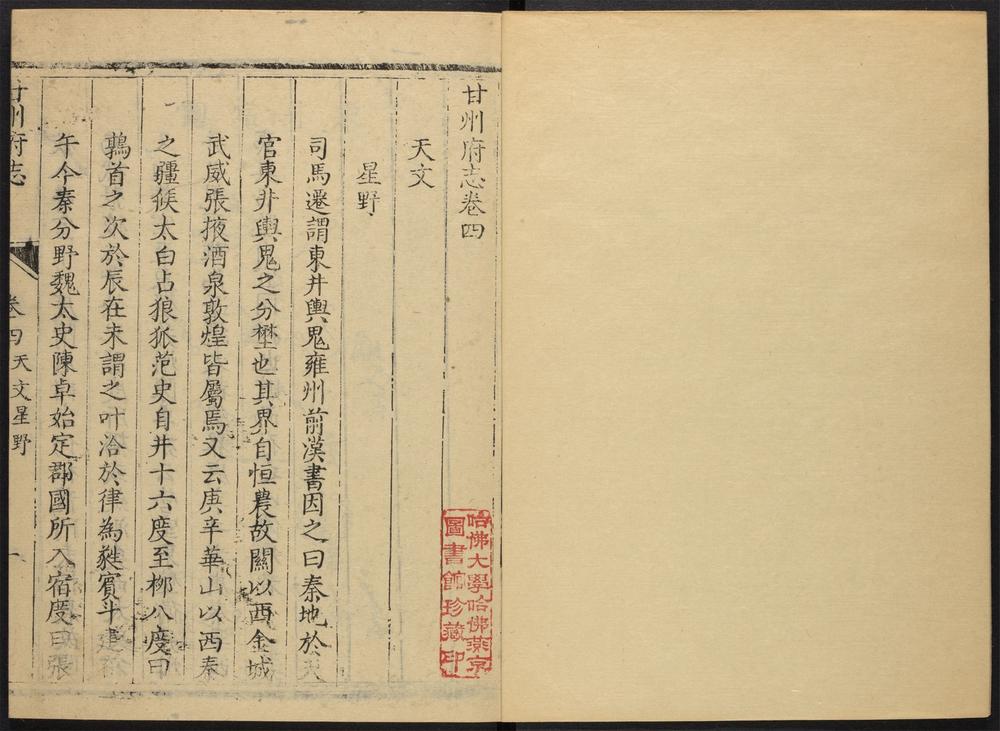 甘州府志卷四
天文
星野
司馬遷謂東井輿鬼雍州前漢書因之曰秦地於天
官東井輿鬼之分壄也其界自恒農故關以西金城
武威張掖酒泉敦煌皆屬焉又云庚辛華山以西秦
之疆候太白占狼狐范史自井十六度至桺八度曰
鶉首之次於辰在未謂之叶洽於律為蕤賓斗建在
午今秦分野魏太史陳卓始定郡國所入宿度曰張
甘州府志
卷四天文星野
一
哈佛大學哈佛燕京
圖書館珍藏印